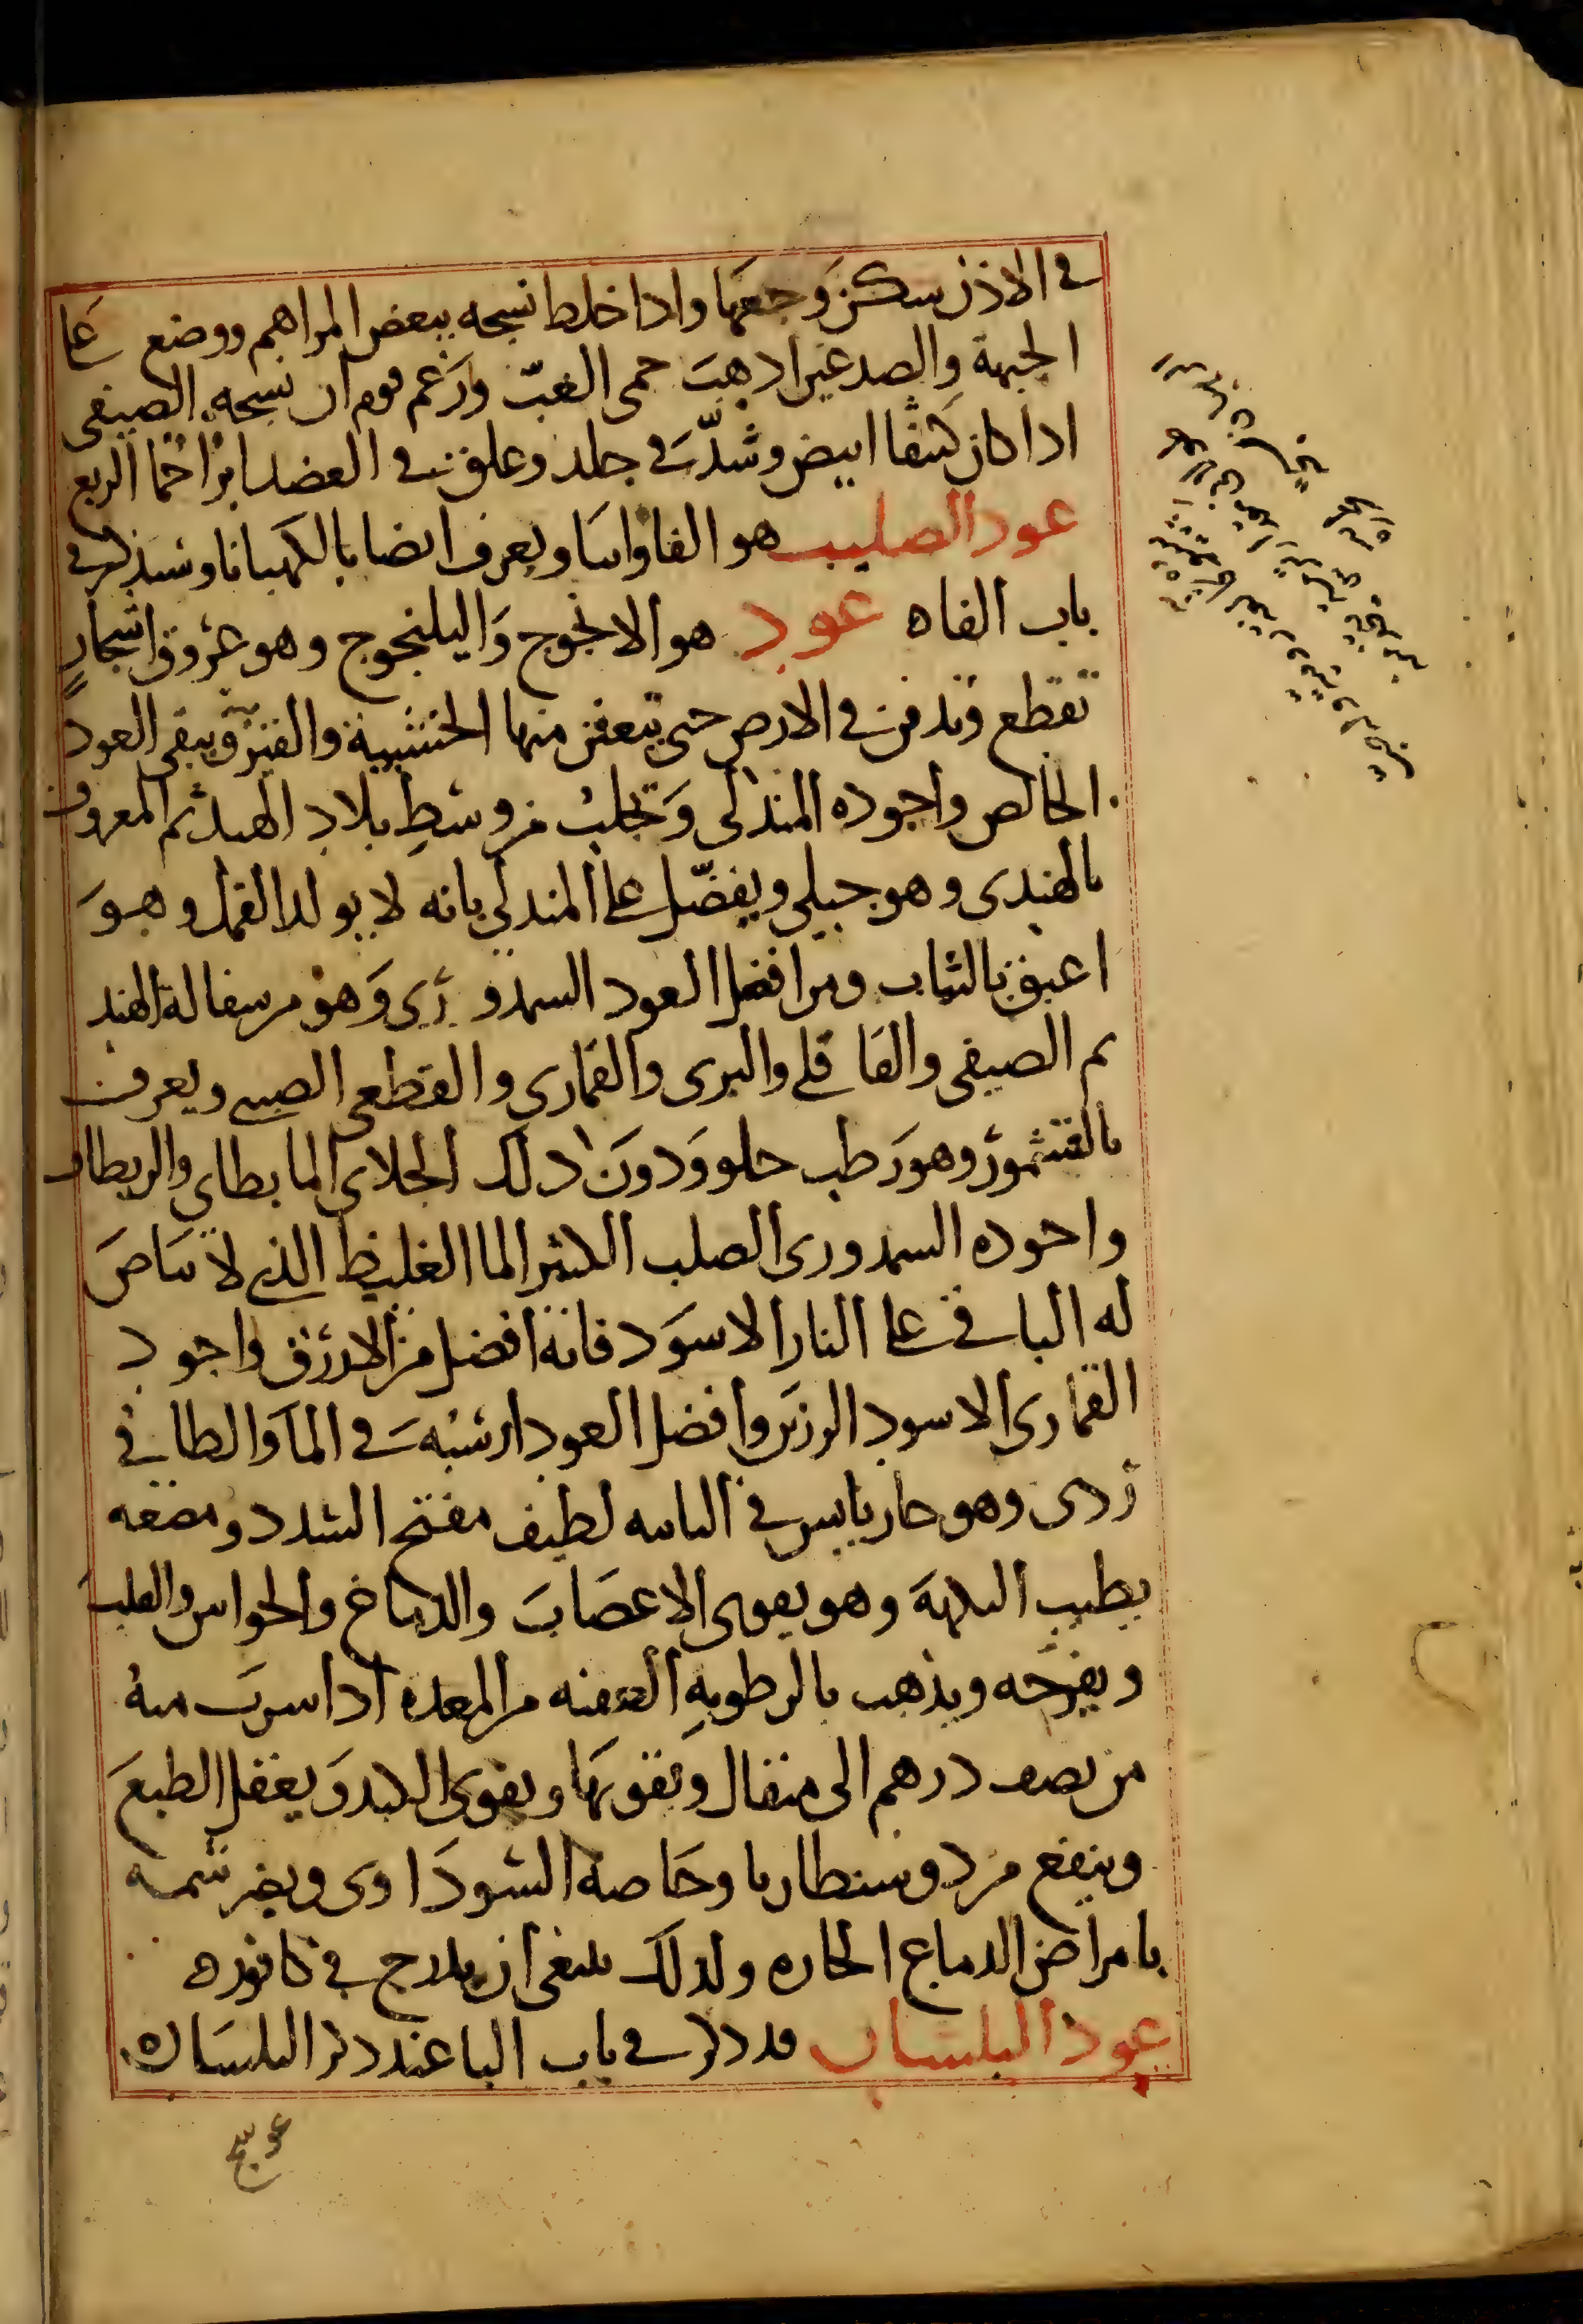 في الاذن سكن وجعها واذا خلط نسجه ببعض المراهم ووضع على
الجبهة والصدغين اذهب حمى الغب وزعم قوم ان نسجه الصيفى
اذا كان كثفا ابيض وشد في جلد وعلق في العضد ابرا حما الربع
عود الصليب هو الفاوانيا ويعرف ايضا بالكهيانا وسنذكر في
باب الفاه عود هو الانجوج واليلنجوج وهو عروق اشجار
تقطع وتدفن في الارض حتى تتعفن منها الخشبية والقشر ويبقى العود
الخالص واجوده المندلى وتجلب من وسط بلاد الهند ثم المعروف
بالهندى وهو جبلى ويفضل على المندلي بانه لا يولد القمل وهو
اعبق بالثياب ومن افضل العود السمدوري وهو من سفالة الهند
ثم الصيفى والقاقلي والبرى والقماري والقطعى الصينى ويعرف
بالقشمور وهو رطب حلو ودون ذلك الجلاى المابطاى والريطاو
واجوده السمدورى الصلب الكثير الما الغليظ الذي لا بياض
له الباقي على النار الاسود فانه افضل من الازرق واجود
القمارى الاسود الرزين وافضل العود ارسبه في الما والطافي
ردى وهو حار يابس في الثانيه لطيف مفتح السدد ومضغه
يطيب النكهة وهو يقوى الاعصاب والدماغ والحواس والقلب
ويفرحه ويذهب بالرطوبه العفنه من المعده اذا شرب منه
من نصف درهم الى مثقال ويقويها ويقوى الكبد ويعقل الطبع
وينفع من دوسنطاريا وخاصة السوداوى ويضر شمه
بامراض الدماغ الحاره ولذلك ينبغى ان يدرج في كافوره
عود البلسان قد ذكر في باب البا عند ذكر البلسان ه
عوسج